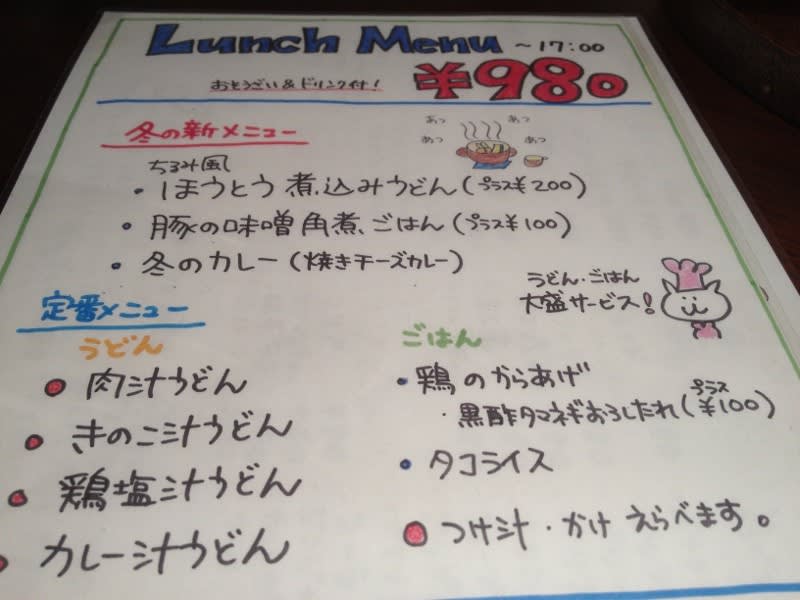 Lunch Menu ~17:00
おとうざい&ドリンク付! ¥980
冬の新メニュー
あっ あっ
あっ あっ
ちるみ風
・ほうとう煮込みうどん(プラス¥200)
・豚の味噌角煮ごはん(プラス¥100)
・冬のカレー(焼きチーズカレー)
うどん・ごはん
大盛サービス!
定番メニュー
うどん
● 肉汁うどん
● きのこ汁うどん
● 鶏塩汁うどん
● カレー汁うどん
ごはん
・鶏のからあげ
・黒酢タマネギおろしたれ(プラス¥100)
・タコライス
● つけ汁・かけ えらべます。